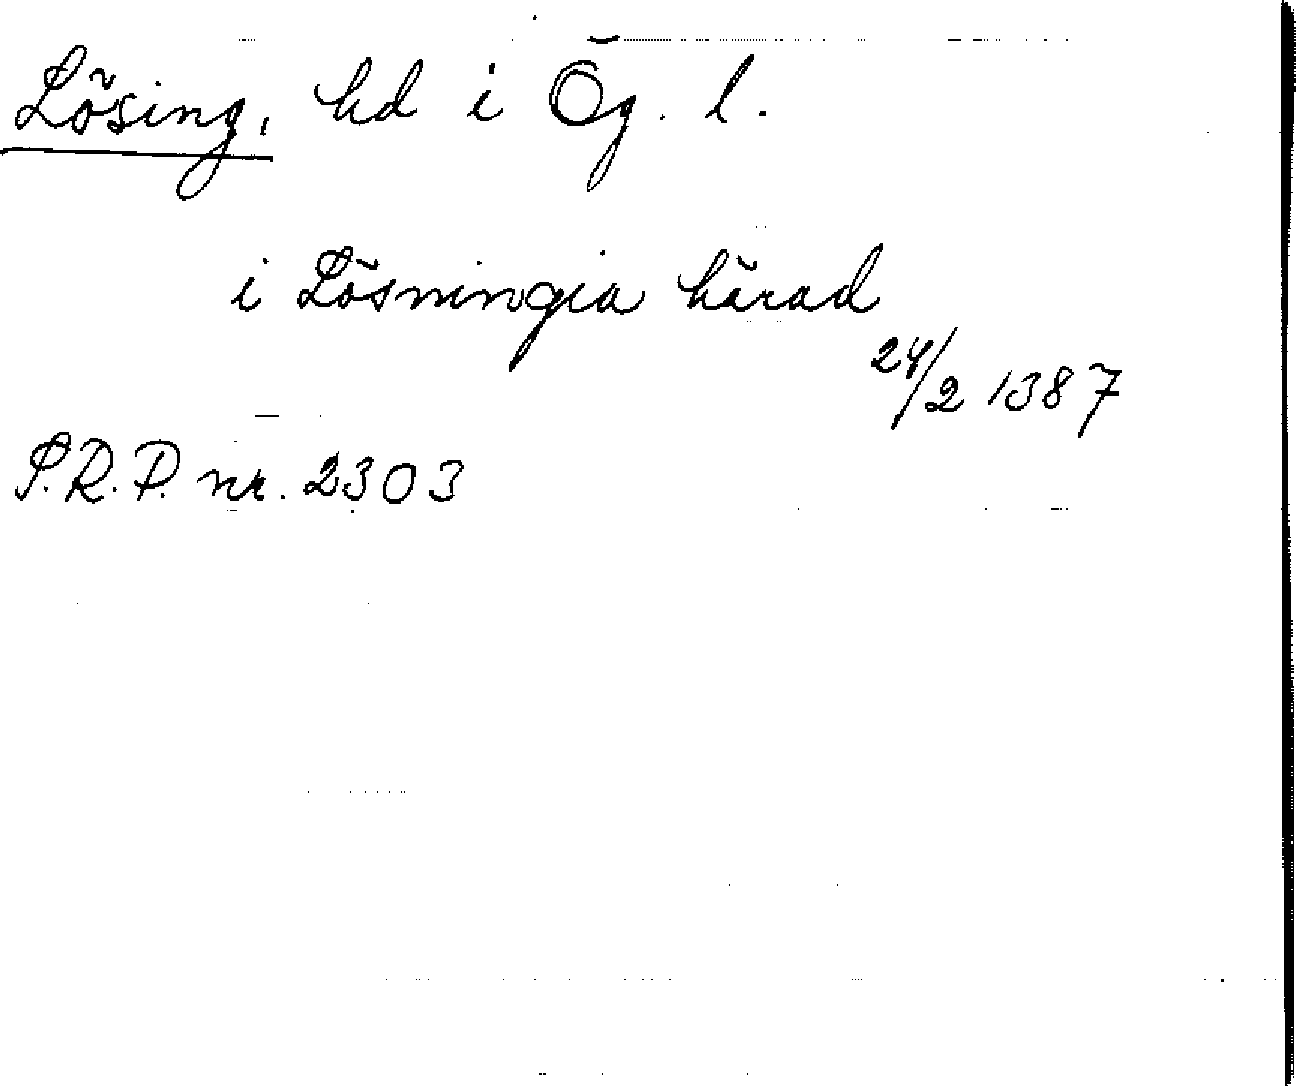 Lösing, hd i Ög. l.
i Lösningia härad
24/2 1387
S.R.P. nr. 2303